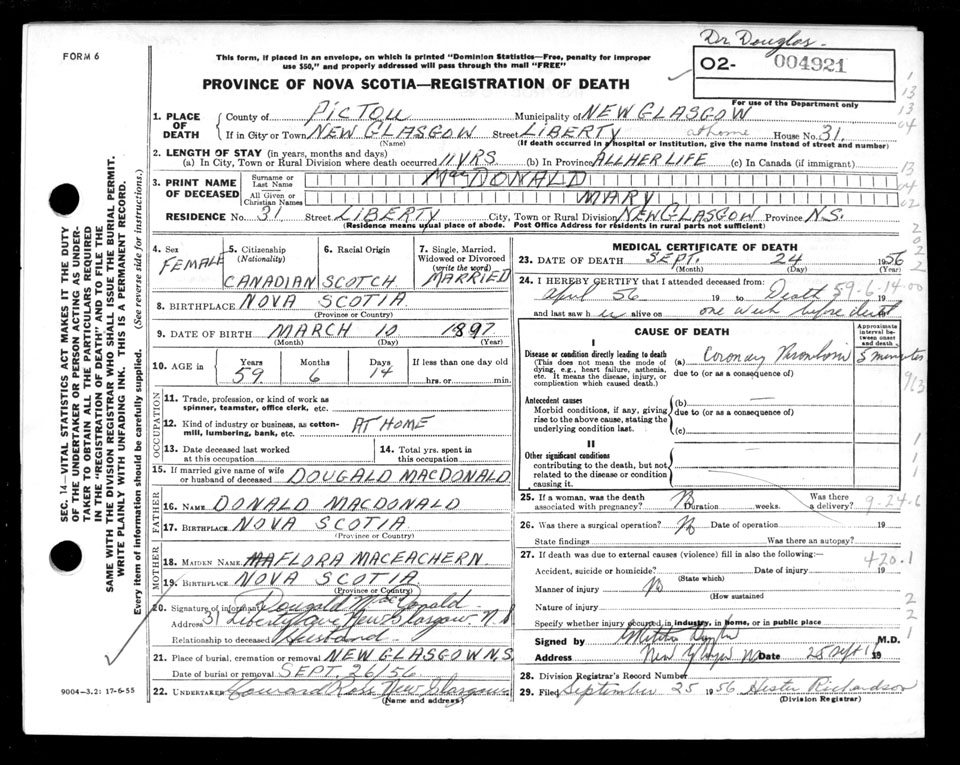 Dr. Douglas
FORM 6
This form, if placed in an envelope, on which is printed "Dominion Statistics—Free, penalty for improper
use $50," and properly addressed will pass through the mail "FREE"
O2- 004921
For use of the Department only
PROVINCE OF NOVA SCOTIA—REGISTRATION OF DEATH
1. PLACE OF DEATH
County of PICTOU Municipality of NEW GLASGOW
If in City or Town NEW GLASGOW Street LIBERTY at home House No. 31.
(Name) (If death occurred in a hospital or institution, give the name instead of street and number)
2. LENGTH OF STAY (in years, months and days)
(a) In City, Town or Rural Division where death occurred 11 YRS (b) In Province ALL HER LIFE (c) In Canada (if immigrant)
3. PRINT NAME OF DECEASED
Surname or Last Name MacDONALD
All Given or Christian Names MARY
RESIDENCE No. 31 Street LIBERTY City, Town or Rural Division NEW GLASGOW Province N.S.
(Residence means usual place of abode. Post Office Address for residents in rural parts not sufficient)
4. Sex FEMALE
5. Citizenship (Nationality) CANADIAN
6. Racial Origin SCOTCH
7. Single, Married, Widowed or Divorced (write the word) MARRIED
8. BIRTHPLACE NOVA SCOTIA
(Province or Country)
9. DATE OF BIRTH MARCH 10 1897
(Month) (Day) (Year)
10. AGE in Years 59 Months 6 Days 14 If less than one day old
hrs. or min.
OCCUPATION
11. Trade, profession, or kind of work as
spinner, teamster, office clerk, etc.
12. Kind of industry or business, as cotton-
mill, lumbering, bank, etc. AT HOME
13. Date deceased last worked
at this occupation
14. Total yrs. spent in
this occupation
15. If married give name of wife
or husband of deceased DOUGALD MACDONALD
FATHER
16. NAME DONALD MACDONALD
17. BIRTHPLACE NOVA SCOTIA
(Province or Country)
MOTHER
18. MAIDEN NAME FLORA MACEACHERN
19. BIRTHPLACE NOVA SCOTIA
(Province or Country)
20. Signature of informant Dougald MacDonald
Address 31 Liberty Ave, New Glasgow N.S
Relationship to deceased Husband
21. Place of burial, cremation or removal NEW GLASGOW N.S.
Date of burial or removal SEPT. 26/56
22. UNDERTAKER Ross New Glasgow
(Name and address)
MEDICAL CERTIFICATE OF DEATH
23. DATE OF DEATH SEPT. 24 1956
(Month) (Day) (Year)
24. I HEREBY CERTIFY that I attended deceased from:
April 56 19 to Death 19
59-6-14-00
and last saw her alive on one week before death
CAUSE OF DEATH
Approximate interval between onset and death
I
Disease or condition directly leading to death
(This does not mean the mode of
dying, e.g., heart failure, asthenia,
etc. It means the disease, injury, or
complication which caused death.)
(a) Coronary Thrombosis 5 minutes
due to (or as a consequence of)
Antecedent causes
Morbid conditions, if any, giving
rise to the above cause, stating the
underlying condition last.
(b) —
due to (or as a consequence of)
(c)
II
Other significant conditions
contributing to the death, but not
related to the disease or condition
causing it.
25. If a woman, was the death
associated with pregnancy? No Duration weeks. Was there
a delivery?
9-24-6
26. Was there a surgical operation? No Date of operation 19
State findings Was there an autopsy?
27. If death was due to external causes (violence) fill in also the following:—
420.1
Accident, suicide or homicide? Date of injury 19
(State which)
Manner of injury No
(How sustained
Nature of injury
Specify whether injury occurred in industry, in home, or in public place
Signed by M.D.
Address New Glasgow NS Date 25 Sept 19
28. Division Registrar's Record Number
29. Filed September 25 1956 Hester Richardson
(Division Registrar)
SEC. 14—VITAL STATISTICS ACT MAKES IT THE DUTY
OF THE UNDERTAKER OR PERSON ACTING AS UNDER-
TAKER TO OBTAIN ALL THE PARTICULARS REQUIRED
IN THE "REGISTRATION OF DEATH" AND TO FILE THE
SAME WITH THE DIVISION REGISTRAR WHO SHALL ISSUE THE BURIAL PERMIT.
WRITE PLAINLY WITH UNFADING INK. THIS IS A PERMANENT RECORD.
Every item of information should be carefully supplied. (See reverse side for instructions.)
9004—3.2: 17-6-55